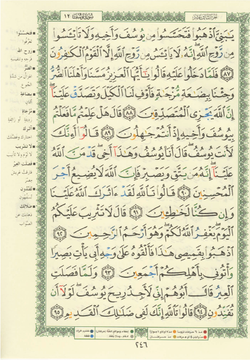 يَٰبَنِيَّ ٱذْهَبُوا۟ فَتَحَسَّسُوا۟ مِن يُوسُفَ وَأَخِيهِ وَلَا تَا۟يْـَٔسُوا۟
مِن رَّوْحِ ٱللَّهِ ۖ إِنَّهُۥ لَا يَا۟يْـَٔسُ مِن رَّوْحِ ٱللَّهِ إِلَّا ٱلْقَوْمُ ٱلْكَٰفِرُونَ
٨٧ فَلَمَّا دَخَلُوا۟ عَلَيْهِ قَالُوا۟ يَٰٓأَيُّهَا ٱلْعَزِيزُ مَسَّنَا وَأَهْلَنَا ٱلضُّرُّ
وَجِئْنَا بِبِضَٰعَةٍ مُّزْجَىٰةٍ فَأَوْفِ لَنَا ٱلْكَيْلَ وَتَصَدَّقْ عَلَيْنَآ
إِنَّ ٱللَّهَ يَجْزِى ٱلْمُتَصَدِّقِينَ ٨٨ قَالَ هَلْ عَلِمْتُم مَّا فَعَلْتُم
بِيُوسُفَ وَأَخِيهِ إِذْ أَنتُمْ جَٰهِلُونَ ٨٩ قَالُوٓا۟ أَءِنَّكَ
لَأَنتَ يُوسُفُ ۖ قَالَ أَنَا۠ يُوسُفُ وَهَٰذَآ أَخِى ۖ قَدْ مَنَّ ٱللَّهُ
عَلَيْنَآ ۖ إِنَّهُۥ مَن يَتَّقِ وَيَصْبِرْ فَإِنَّ ٱللَّهَ لَا يُضِيعُ أَجْرَ
ٱلْمُحْسِنِينَ ٩٠ قَالُوا۟ تَٱللَّهِ لَقَدْ ءَاثَرَكَ ٱللَّهُ عَلَيْنَا
وَإِن كُنَّا لَخَٰطِـِٔينَ ٩١ قَالَ لَا تَثْرِيبَ عَلَيْكُمُ
ٱلْيَوْمَ ۖ يَغْفِرُ ٱللَّهُ لَكُمْ ۖ وَهُوَ أَرْحَمُ ٱلرَّٰحِمِينَ ٩٢
ٱذْهَبُوا۟ بِقَمِيصِى هَٰذَا فَأَلْقُوهُ عَلَىٰ وَجْهِ أَبِى يَأْتِ بَصِيرًا
وَأْتُونِى بِأَهْلِكُمْ أَجْمَعِينَ ٩٣ وَلَمَّا فَصَلَتِ
ٱلْعِيرُ قَالَ أَبُوهُمْ إِنِّى لَأَجِدُ رِيحَ يُوسُفَ ۖ لَوْلَآ أَن
تُفَنِّدُونِ ٩٤ قَالُوا۟ تَٱللَّهِ إِنَّكَ لَفِى ضَلَٰلِكَ ٱلْقَدِيمِ ٩٥
٢٤٦